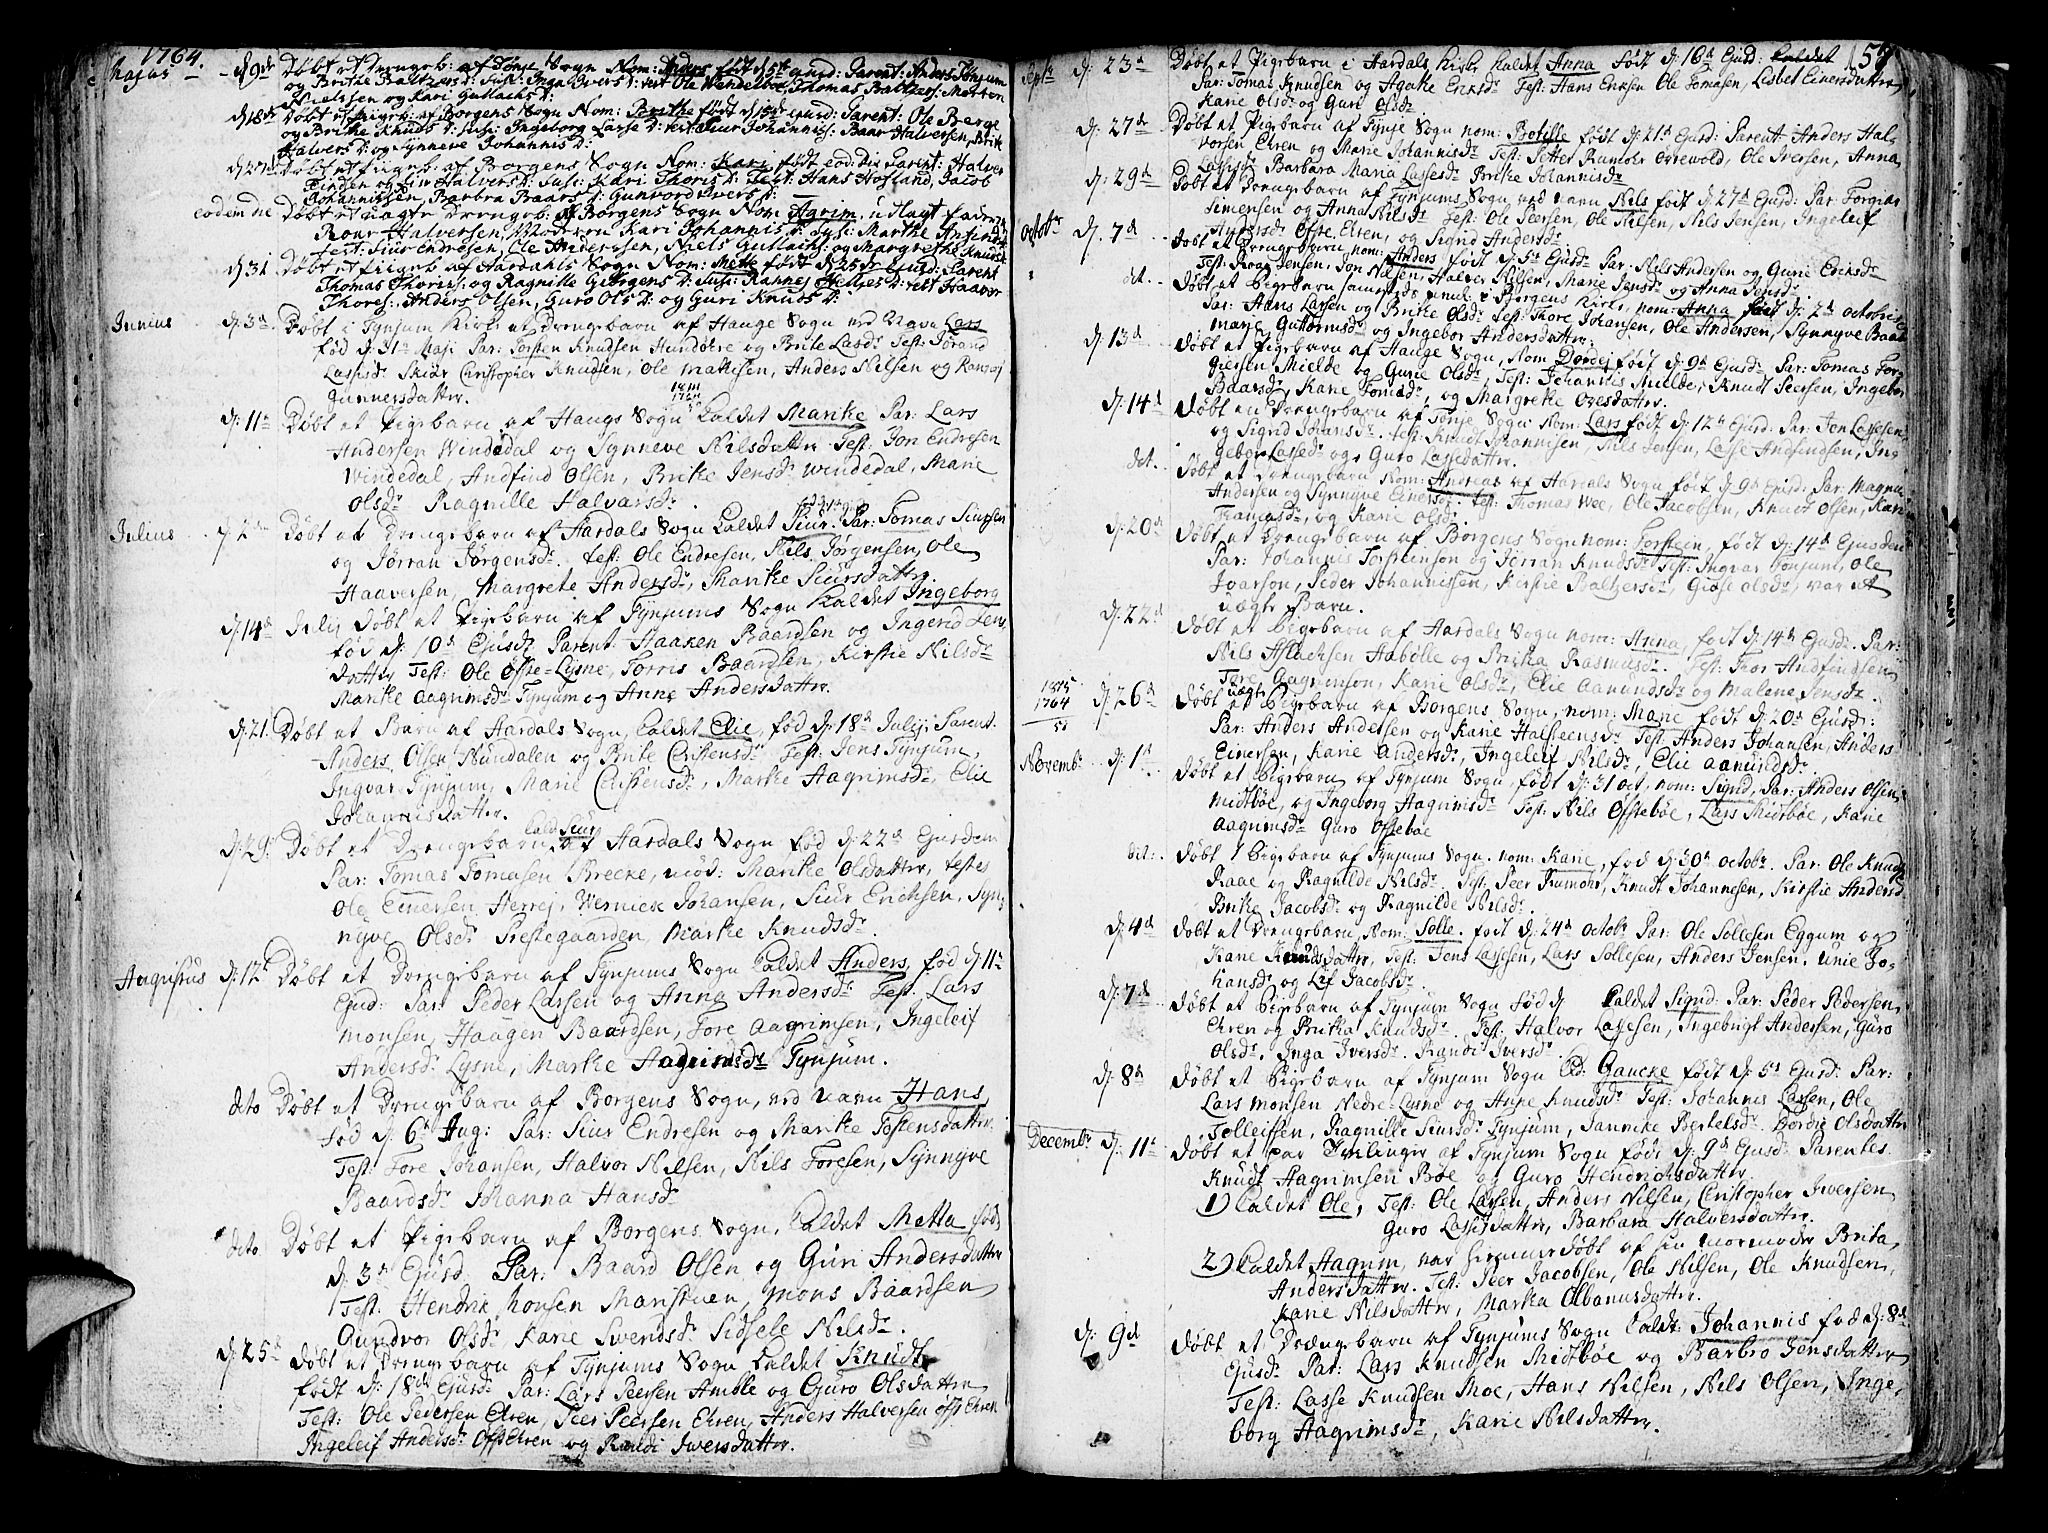 1764.
Majus – d 9de Døbt et Drengeb: af Tønje Sogn Nom: Anders født d 5te ejusd: Parent: Anders Tønjum
og Brithe Baltzers d: Sus: Inga Ivers d: rest Ole Wendelboe, Thomas Baltzers: Morten
Nielssen og Kari Gullachs d:
d 18de Døbt et Pigeb: af Borgens Sogn Nom: Brithe født d 15de ejusd: Parent: Ole Barge
og Brithe Knuds d: Sus: Ingeborg Larse d: rest Siur Johannis: Baar Halversen, Brite
Halvers d: og Synneve Johannis d:
d 27de Døbt et Pigeb: af Borgens Sogn Nom: Kari født eod: Die Parent: Halver
Tinden og Siri Halvers d: Sus: Kari Thoris d: Test: Hans Hofland, Jacob
Johannissen, Barbra Baars d: Gunvord Ivers d:
eodem die Døbt et uægte Drengeb. af Borgens Sogn Nom Agrim, udlagt fader
Roar Halversen, Moderen Kari Johannis d: Sus: Marthe Anfinds
test: Siur Endresen, Ole Andersen, Niels Gullachs: og Margrethe Knuds
d 31 Døbt et Pigeb af Aardahls Sogn Nom: Mette født d 25de ejusd: Parent
Thomas Thoris: og Ragnille Giørgens d: Sus: Rannej Helljes d: rest Haaver
Thores: Anders Olsen, Guro Ols d: og Guri Knuds d:
Junius d: 3d. Døbt i Tynjum Kirke et Drengebarn af Hauge Sogn ved Navn Lars
fød d: 31te Maji Par: Torsten Knudsen Hundere og Brite Lasdr Test: Torand
Lassesdr Skiør Christopher Knudsen, Ole Mathisen, Anders Nilsen og Ranvej
Gunnersdatter.
d: 11te Døbt et Pigebarn af Haugs Sogn kaldet Marike Par: Lars
Andersen Windedal og Synneve Nilsdatter Test: Jon Endresen
Windedal, Andfind Olsen, Brike Jensdr Windedal, Marie
Olsdr Ragnille Halvarsdr.
Julius d: 2de Døbt et Drengebarn af Aardals Sogn kaldet Siur. Par: Tomas Siursen
og Jørran Jørgensdr. test: Ole Endresen, Nils Jørgensen, Ole
Haaversen, Margrete Andersdr, Marike Siursdatter.
d: 14d Julij Døbt et Pigebarn af Tynjums Sogn kaldet Ingeborg
fød d: 10d Ejusd: Parent: Haaken Baardsen og Ingerid Jens
datter Test: Ole Øfste-Lysne, Torris Baardsen, Kirstie Nilsdr
Marike Aagrimsdr Tynjum og Anne Andersdatter.
d: 21. Døbt et Barn af Aardals Sogn, kaldet Elie, fød d: 18d Julij. Parent.
Anders Olsen Nundalen og Brite Christensdr Test: Jens Tynjum,
Ingvar Tynjum, Marie Christensdr, Marke Aagrimsdr, Elie
Johannisdatter.
d: 29d Døbt et Drengebarn kald Siur af Aardals Sogn fød d: 22d Ejusdem
Par: Tomas Tomasen Brecke, mod: Marike Olsdatter, testes
Ole Einersen Herrej, Wernick Johansen, Siur Erichsen, Syn
nyve Olsdr Prestegaarden, Marke Knudsdr.
Augustus d: 12te Døbt et Drengebarn af Tynjums Sogn kaldet Anders, fød d: 11te
Ejusd: Par: Peder Lassen og Anna Andersdr Test: Lars
Monsen, Haagen Baardsen, Tore Aagrimsen, Ingeleif
Andersdr Lysne, Marke Aagrimsdr Tynjum.
deto Døbt et Drengebarn af Borgens Sogn, ved navn Hans
fød d: 6te Aug: Par: Siur Endresen og Marike Testensdatter
Test: Tore Johansen, Halvor Nilsen, Nils Toresen, Synnyve
Baardsdr Johanna Hansdr
deto Døbt et Pigebarn af Borgens Sogn, kaldet Metta fød
d: 3te Ejusd. Par: Baard Olsen og Guri Andersdatter
Test: Hendrik Monsen Manstuen, Mons Baardsen
Gundvor Olsdr Karie Swendsdr Sidsele Nilsdr.
d: 25d Døbt et Drengebarn af Tynjums Sogn kaldet Knudt
født d: 18de Ejusd: Par: Lars Peersen Amble og Guro Olsdatter
Test: Ole Pedersen Ehren, Peer Peersen Ehren, Anders Halversen Øfst Ehren
Ingeleif Andersdr Øfst Ehren og Randi Iwersdatter.
Sept: d: 23d Døbt et Pigebarn i Aardals Kirke kaldet Anna født d: 16d Ejusd:
Par: Tomas Knudsen og Agate Eriksdr Test: Hans Eriksen Ole Tomasen, Lisbet Einersdatter
Karie Olsdr og Guri Olsdr
d: 27de Døbt et Pigebarn af Tynje Sogn nom: Botille født d: 21d Ejusd: Parent: Anders Hal
vorsen Ehren og Marie Johannisdr Test: Petter Rumohr Ovrevold, Ole Iversen, Anna
Lassesdr Barbara Maria Lassesdr Brike Johannisdr
d: 29d Døbt et Drengebarn af Tynjums Sogn ved navn Nils født d: 27d Ejusd: Par: Torgier
Simensen og Anna Nilsdr Test: Ole Peersen, Ole Nielsen, Nils Jensen, Ingeleif
Øfste Ehren, og Sigrid Andersdr
Octobr d: 7d Døbt et Drengebarn nom: Anders født d: 5te Ejusd: Par: Nils Andersen og Gurie Eriksdr
Test: Roar Jensen, Jon Nilsen, Halvor Nilsen, Marie Jensdr og Anna Jensdr
det. Døbt et Pigebarn i Borgens Kirke, nom: Anna født d: 2d Octobr
Par: Hans Larsen og Brike Olsdr Test: Thore Johansen, Ole Andersen, Synnyve Baar
Marie Guttormsdr og Ingebor Andersdatter.
d: 13d Døbt et Pigebarn af Hauge Sogn, Nom Dordej født d: 9d Ejusd: Par: Tomas Tor
giersen Mielde og Gurie Olsdr, Test: Johannis Mielde, Knudt Peersen, Ingebor
Baarsdr, Karie Tomasdr, og Margrete Ovesdatter.
d: 14d Døbt en Drengebarn af Tønje Sogn Nom: Lars født d: 12te Ejusd: Par: Jon Lassesen
og Sigrid Johansdr. Test: Knudt Johannisen, Nils Jensen, Lasse Andfindsen, In
gebor Lassedr og Guro Lassedatter.
det. Døbt et Drengebarn Nom: Andreas af Aardals Sogn født d: 9d Ejusd: Par: Magnus
Andersen og Synnyve Einersdr. Test: Thomas Wee, Ole Jacobsen, Knudt Olsen, Karie
Tomasdr, og Karie Olsdr
d: 20d Døbt et Drengebarn af Borgens Sogn nom: Torstein, født d: 14d Ejusdem
Par: Johannis Torsteinson og Jørran Knudsdr Test: Ingvar Tonjum, Ole
Ivarson, Peder Johannissen, Kirstie Baltzersdr, Giøse Olsdr, var et
uægte Barn.
d: 22d Døbt et Pigebarn af Aardals Sogn nom: Anna, født d: 14de Ejusd. Par:
Nils Aslachsen Aabølle og Brita Rasmusdr. Test: Tor Andfindsen
Tore Aagrimson, Karie Olsdr, Elie Aamundsdr og Malena Jensdr
1815
1764
51
d: 26d Døbt et uægte Pigebarn af Borgens Sogn, nom: Marie født d: 20d Ejusd:
Par: Anders Andersen og Karie Halsteensdr Test: Anders Johansen, Anders
Einersen, Karie Andersdr, Ingeleif Nilsdr, Elie Aamundsdr
Novembr d: 1te Døbt et Pigebarn af Tynjum Sogn født d: 31 Oct, nom: Sigrid, Par: Anders Olsen
Midtbøe, og Ingeborg Aagrimsdr Test: Nils Øfstebøe, Lars Midtbøe, Karie
Aagrimsdr Guro Øfstebøe
det: Døbt 1 Pigebarn af Tynjums Sogn. nom: Karie, fød d: 30d Octobr Par: Ole Knuds
Raae og Ragnilde Nilsdr. Test: Peer Rumohr, Knudt Johannesen, Kirstie Andersd
Brike Jacobsdr og Ragnilde Nilsdr.
d: 4d Døbt et Drengebarn, Nom: Solle. født d: 24d Octobr Par: Ole Sollesen Eggum og
Kari Knudsdatter, Test: Jens Lassesen, Lars Sollesen, Anders Jensen, Unie Jo
hansdr og Lif Jacobsdr
d: 7d Døbt et Pigebarn af Tynjum Sogn fød d: kaldet Sigrid: Par: Peder Pedersen
Ehren og Brita Knudsdr. Test: Halvor Lassesen, Ingebrigt Andersen, Guro
Olsdr, Inga Iversdr. Randi Iversdr
d: 8d Døbt et Pigebarn af Tynjum Sogn kld: Gaucke født d: 5d Ejusd: Par:
Lars Monsen Nedre-Lysne og Anne Knudsdr Test: Johannes Larsen, Ole
Tolleifsen, Ragnille Siursdr Tynjum, Jannike Bertelsdr Dordie Olsdatter
Decembr d: 11te Døbt et par Tvilinger af Tynjum Sogn født d: 9d Ejusd: Parentes
Knudt Aagrimsen Bøe og Guro Hendrichsdatter
1) kaldet Ole, Test: Ole Larsen, Anders Nilsen, Christopher Iwersen
Guro Lassesdatter, Barbara Halversdatter.
2) kaldet Aagrim, var hiemmedøbt af sin mormoder Brita
Andersdatter. Test: Peer Jacobsen, Ole Nilsen, Ole Knudsen,
Karie Nilsdatter, Marka Olbanusdatter.
d: 9d Døbt et Drengebarn af Tynjums Sogn kald: Johannis fød d: 8d
Ejusd: Par: Lars Knudsen Midtbøe og Barbro Jensdatter
Test: Lasse Knudsen Moe, Hans Nilsen, Nils Olsen, Inge
borg Aagrimsdr, Karie Nilsdatter.